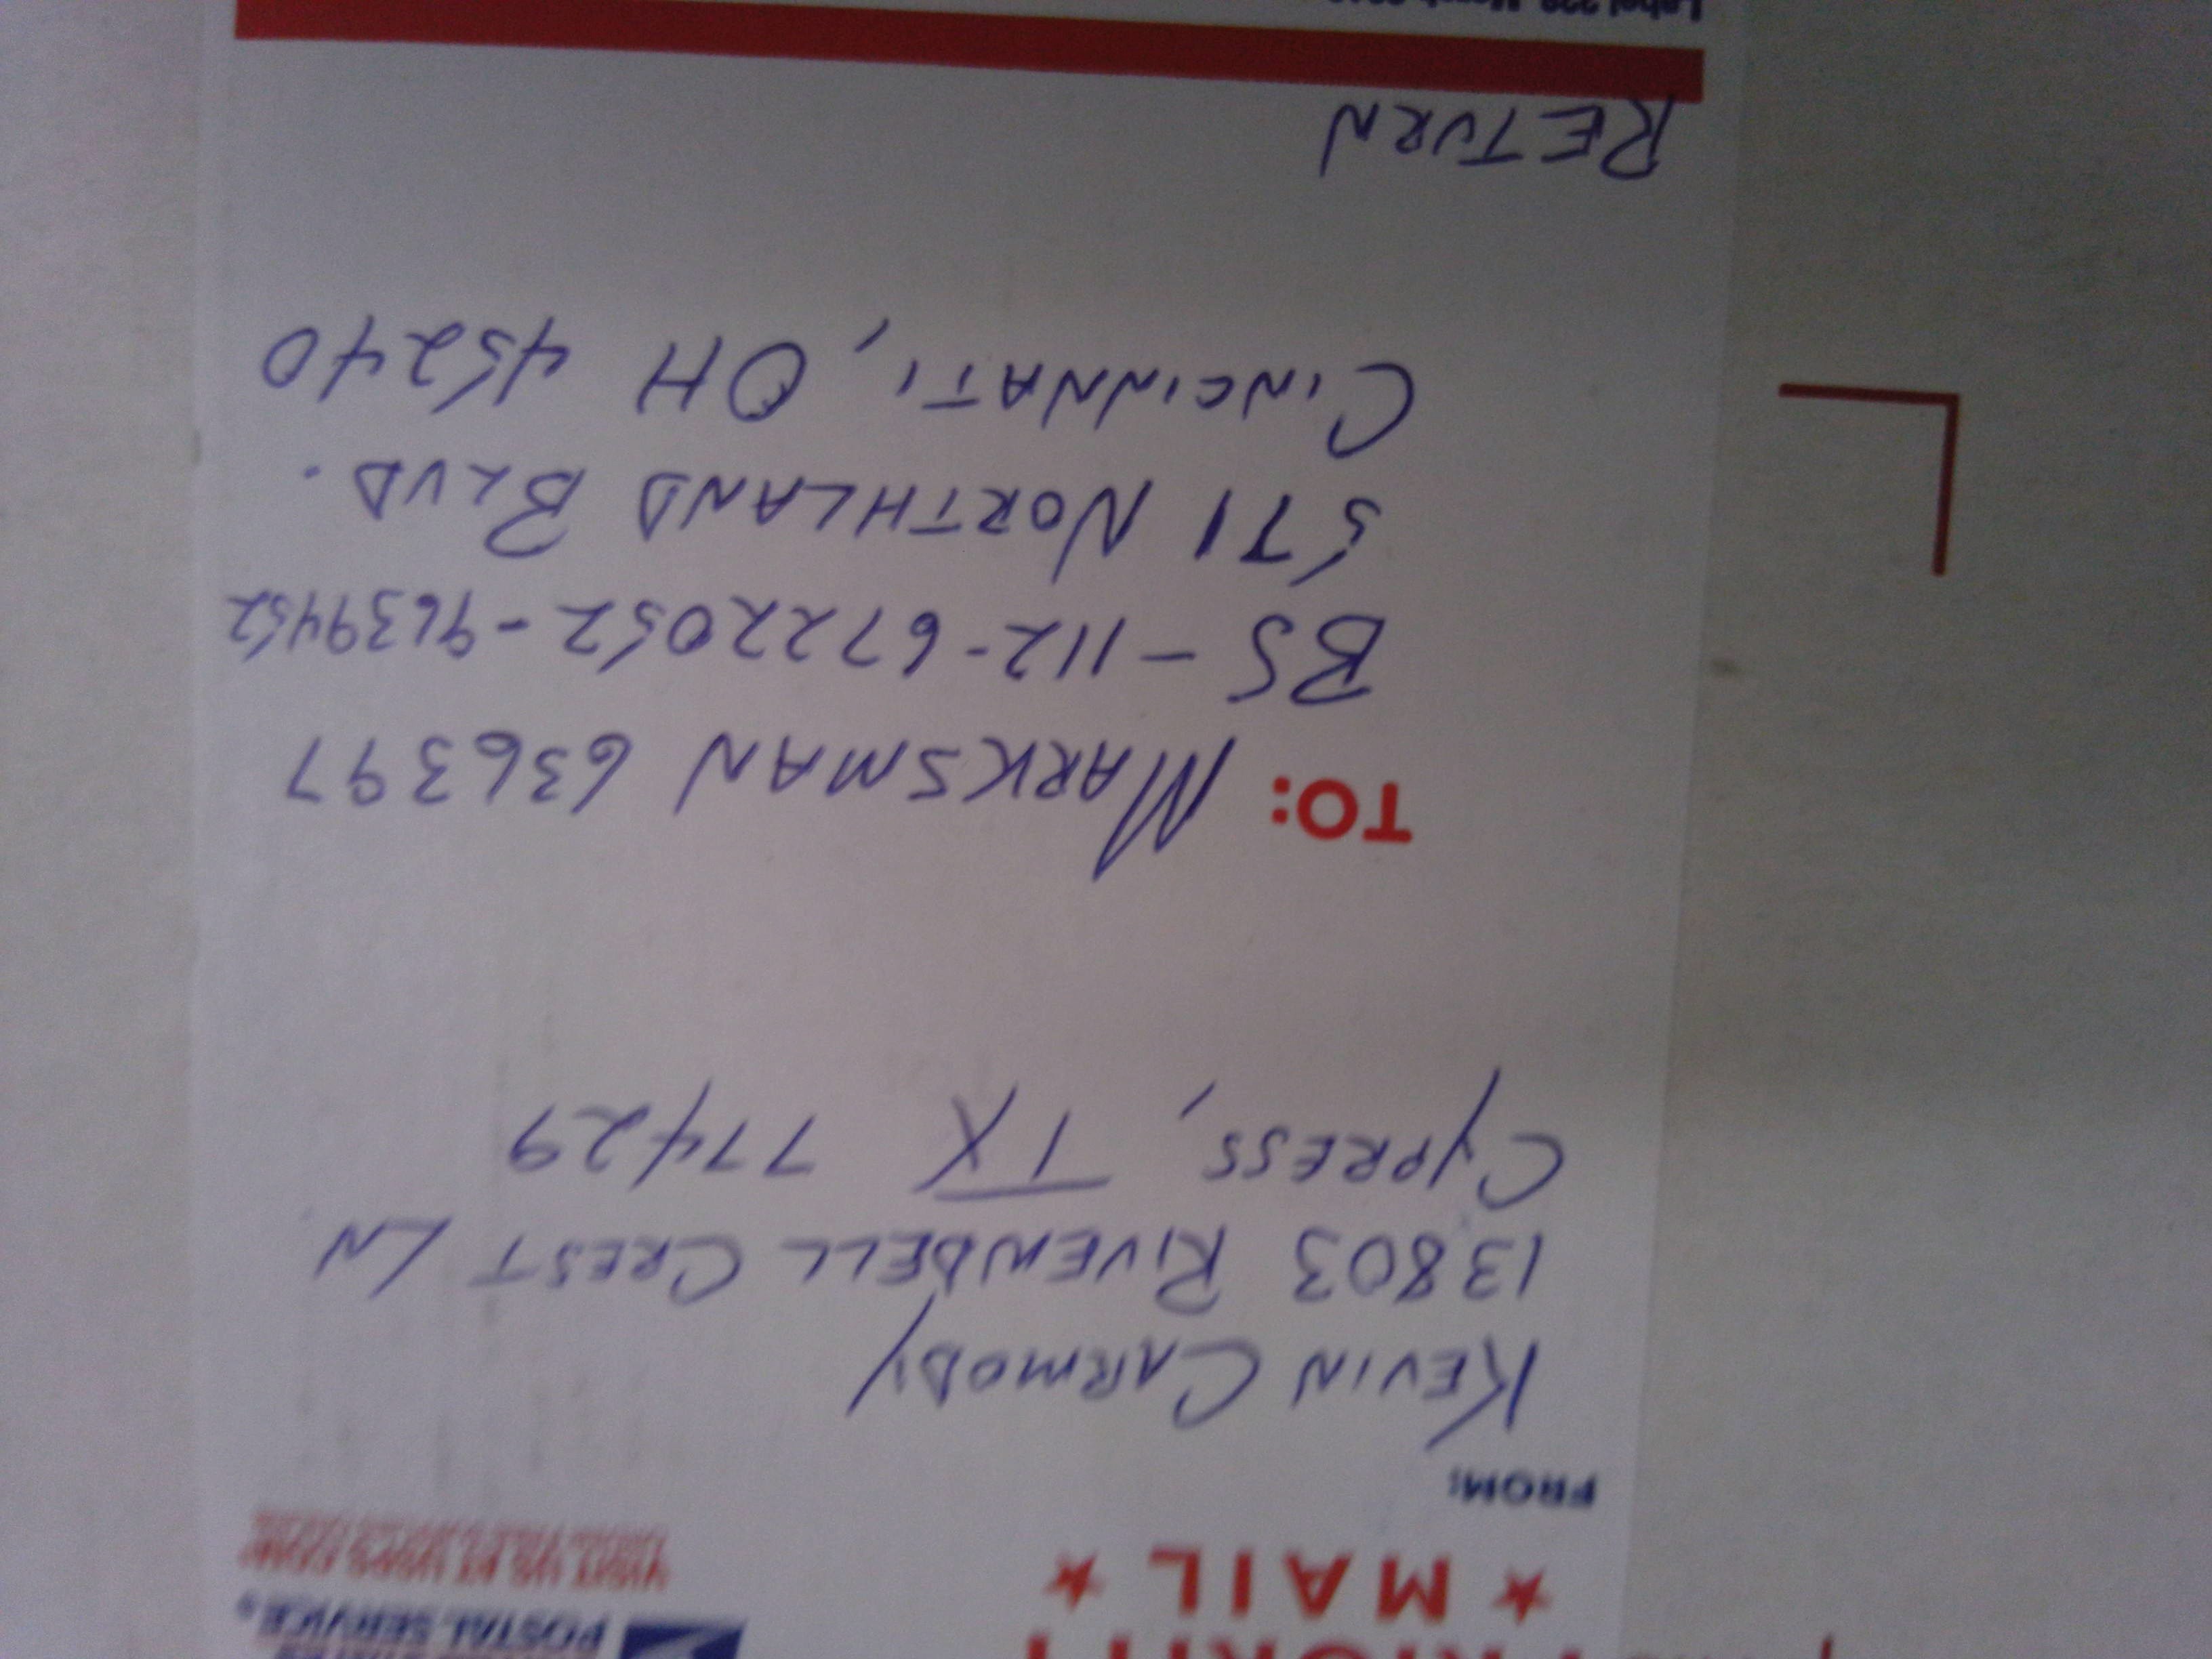 ★ MAIL ★
POSTAL SERVICE®
VISIT US AT USPS.COM
FROM:
KEVIN CARMODY
13803 RIVENDELL CREST LN
CYPRESS, TX 77429
TO: MARKSMAN 636397
BS-112-67222052-9639452
571 NORTHLAND BLVD.
CINCINNATI, OH 45240
RETURN
Label 228, March